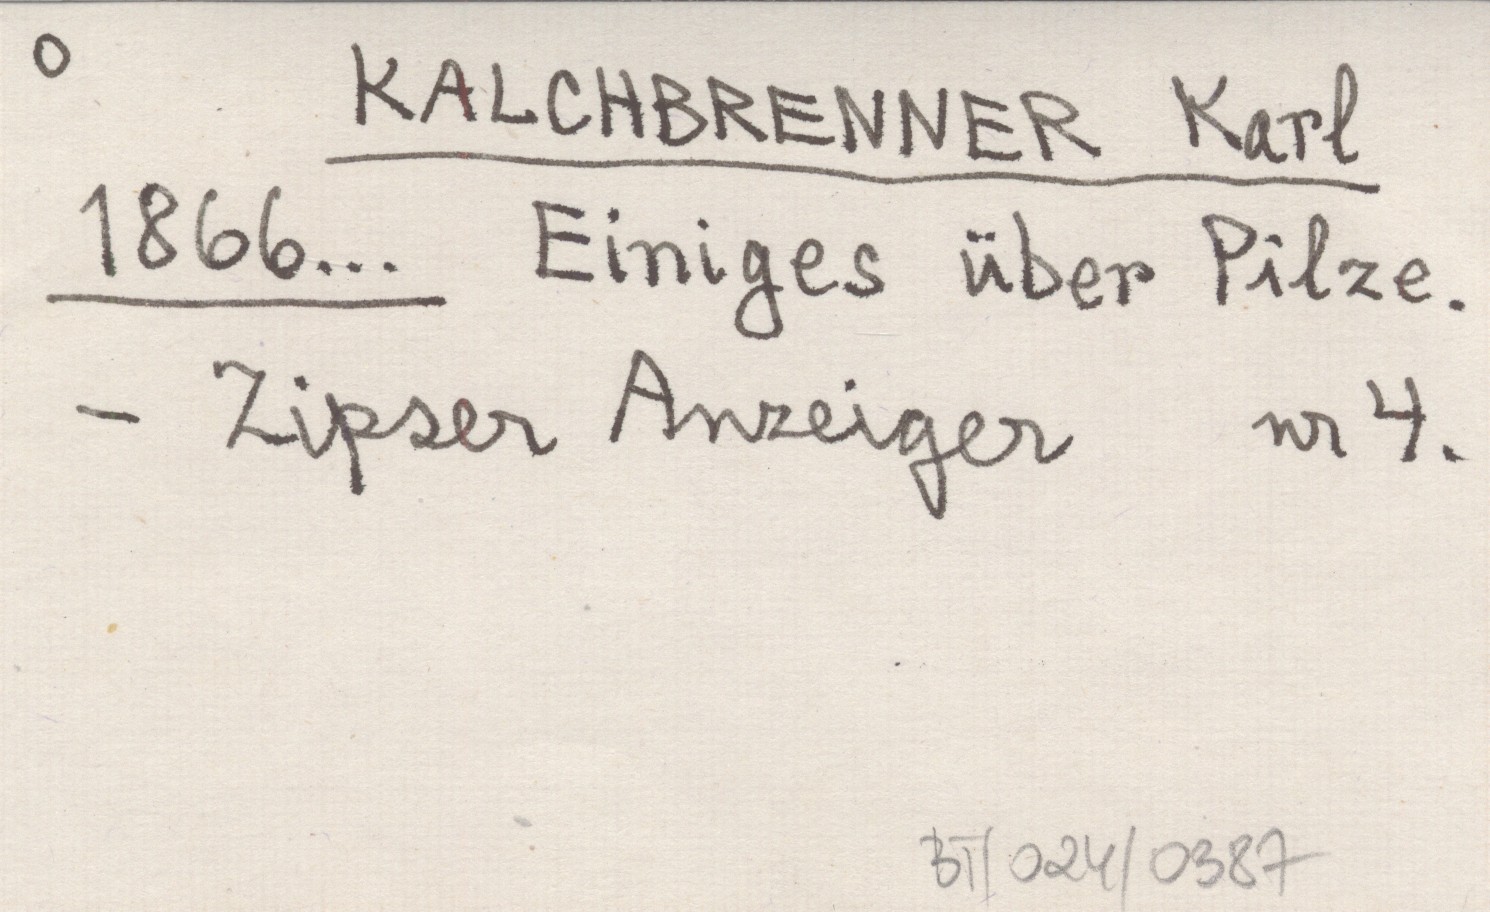 o KALCHBRENNER Karl
1866... Einiges über Pilze.
- Zipser Anzeiger nr 4.
BI/024/0387